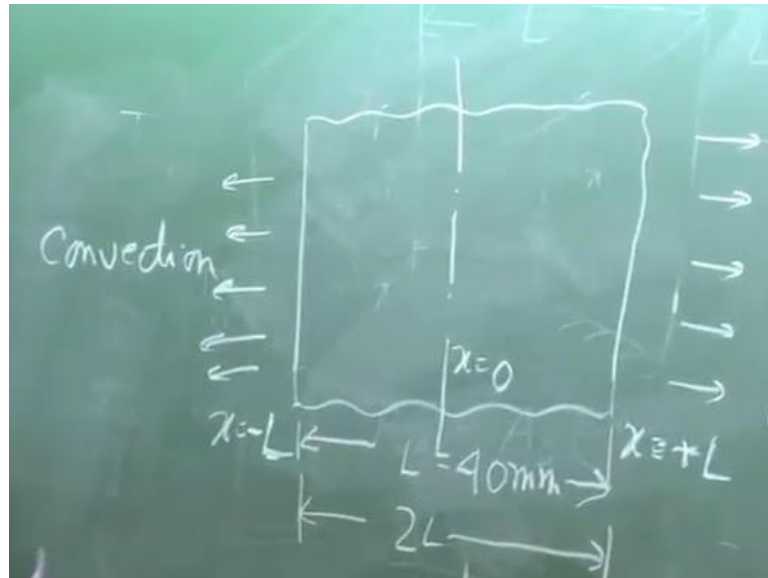 Convection
x=0
x=-L
L=40mm
x=+L
2L